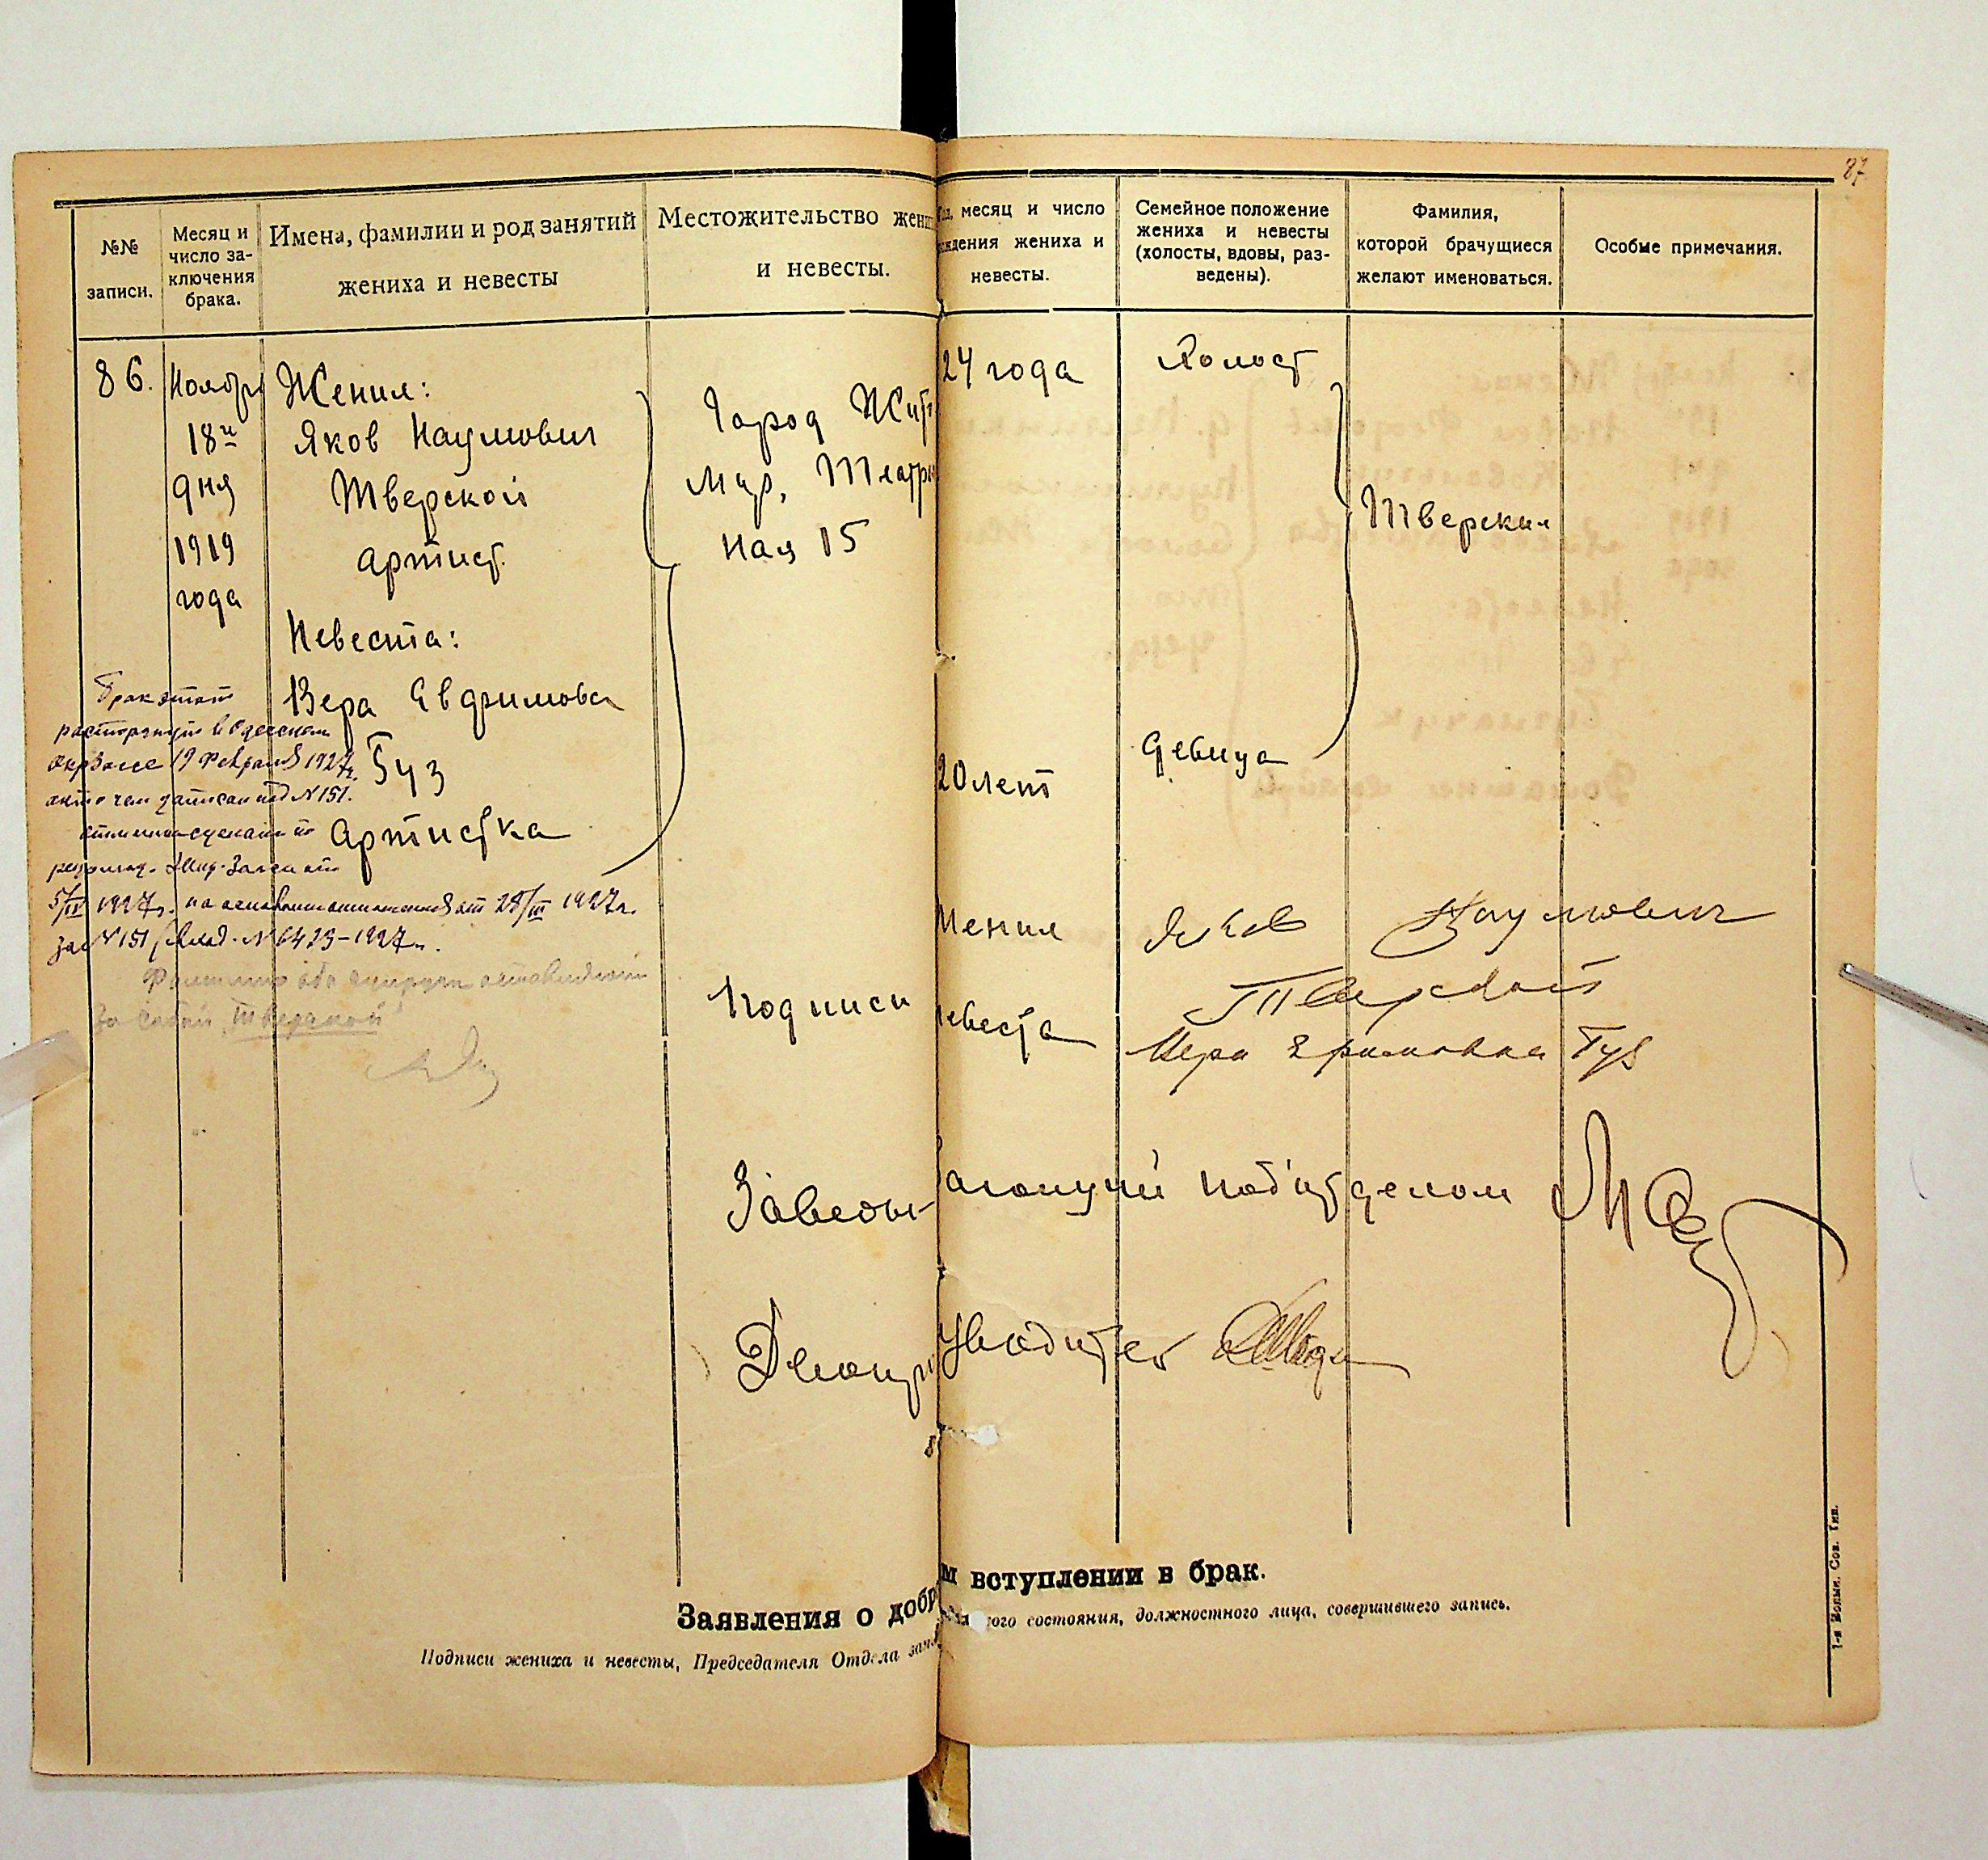 87
№№
записи.
Месяц и
число за-
ключения
брака.
Имена, фамилии и род занятий
жениха и невесты
Местожительство жени
и невесты.
месяц и число
ждения жениха и
невесты.
Семейное положение
жениха и невесты
(холосты, вдовы, раз-
ведены).
Фамилия,
которой брачущиеся
желают именоваться.
Особые примечания.
86.
Ноября
18го
дня
1919
года
Жених:
Яков Наумович
Тверской
артист.
Невеста:
Вера Евфимовна
Гуз
Артистка
Город Жит
мир, Театр
ная 15
24 года
20 лет
Холост
Девица
Тверские
Брак этот
расторгнут в Одесском
окрзагсе 19 февраля 1927г.
акт о чем записан под №151.
отметка сделана по
5/IV 1927г. на основании отношения от 28/III 1927г.
за №151 №6423-1927г.
Фамилию оба супруга оставили
за собой "Тверской"
Подписи
Жених Яков Наумович
Тверской
Невеста Вера Ефимовна Гуз
Заведы-вающий подотделом
Делопроизводитель
Заявления о добр м вступлении в брак.
Подписи жениха и невесты, Председателя Отдела запи ского состояния, должностного лица, совершившего запись.
1-я Волын. Сов. Тип.